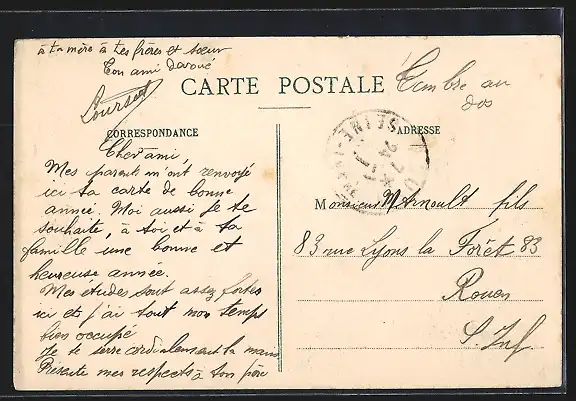 à ta mère à tes frères et sœur
Ton ami dévoué
CARTE POSTALE
Timbre au
dos
CORRESPONDANCE
ADRESSE
Cher ami,
Mes parents m'ont renvoyé
ici ta carte de bonne
année. Moi aussi je te
souhaite, à toi et à ta
famille une bonne et
heureuse année.
Mes études sont assez fortes
ici et j'ai tout mon temps
bien occupé
Je te serre cordialement la main
Présente mes respects à ton père
Monsieur M Arnoult fils
83 rue Lyons la Forêt 83
Rouen
S. Inf